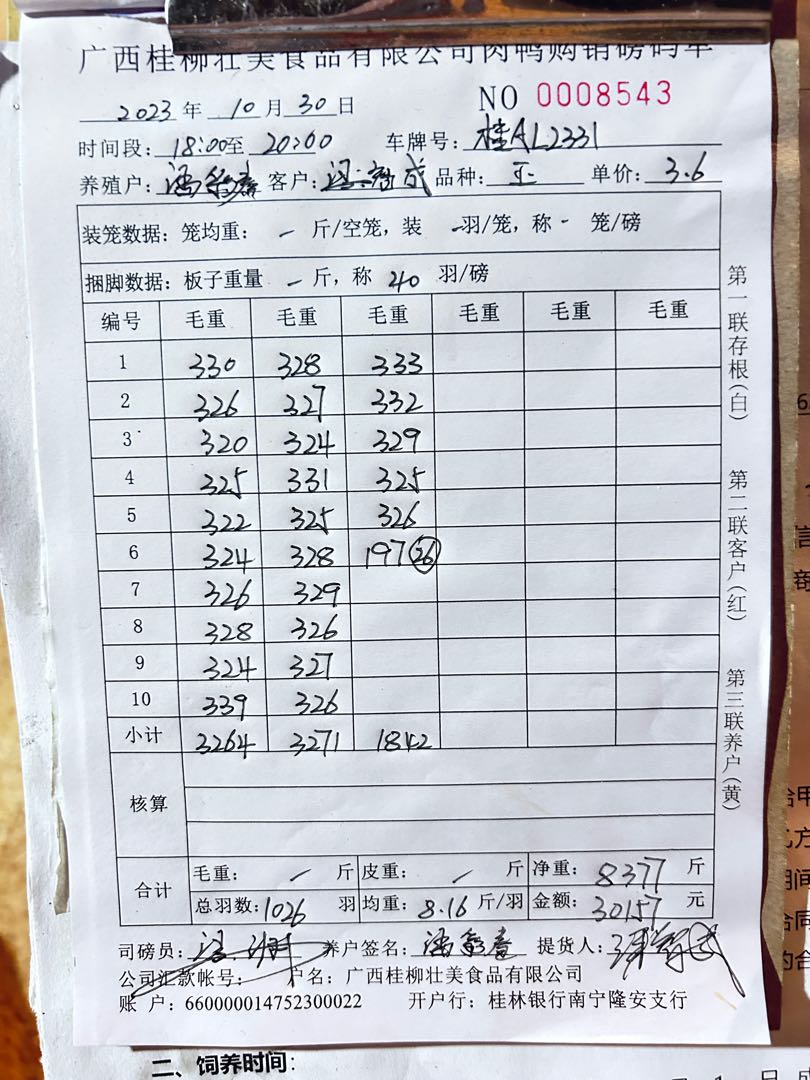 广西桂柳壮美食品有限公司肉鸭购销磅码单
2023 年 10 月 30 日 NO 0008543
时间段: 18:00 至 20:00 车牌号: 桂AL2331
养殖户: 客户: 品种: 单价: 3.6
装笼数据: 笼均重: - 斤/空笼, 装 - 羽/笼, 称 - 笼/磅
捆脚数据: 板子重量 - 斤, 称 40 羽/磅
编号 毛重 毛重 毛重 毛重 毛重 毛重
1 330 328 333
2 326 327 332
3 320 324 329
4 325 331 325
5 322 325 326
6 324 328 197 26
7 326 329
8 328 326
9 324 327
10 339 326
小计 3264 3271 1842
核算
合计 毛重: - 斤 皮重: - 斤 净重: 8377 斤
总羽数: 1026 羽 均重: 8.16 斤/羽 金额: 30157 元
司磅员: 养户签名: 提货人:
公司汇款帐号: 户名: 广西桂柳壮美食品有限公司
账 户: 660000014752300022 开户行: 桂林银行南宁隆安支行
第一联存根(白) 第二联客户(红) 第三联养户(黄)
二、饲养时间: